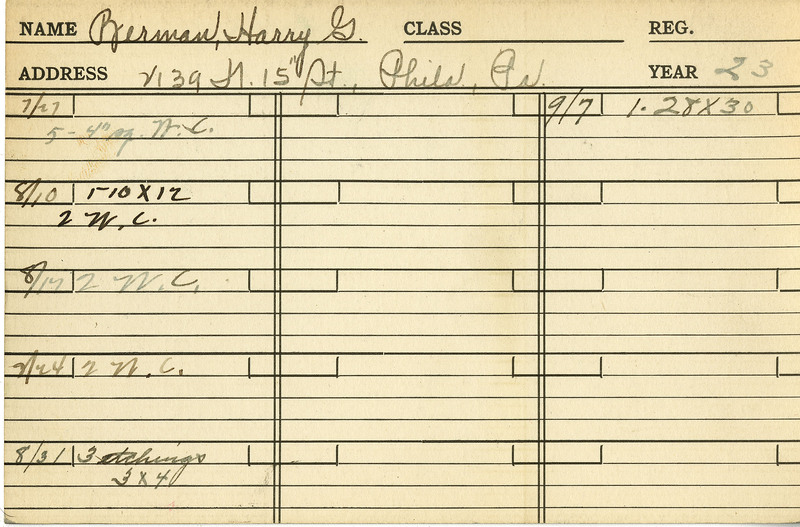 NAME Berman, Harry G. CLASS REG.
ADDRESS 2139 N. 15" St., Phila, Pa. YEAR 23
7/27 9/7 1-28X30
5-4" sq. W.C.
8/10 1-10X12
2 W.C.
8/17 2 W.C.
8/24 2 W.C.
8/31 3 etchings
3x4